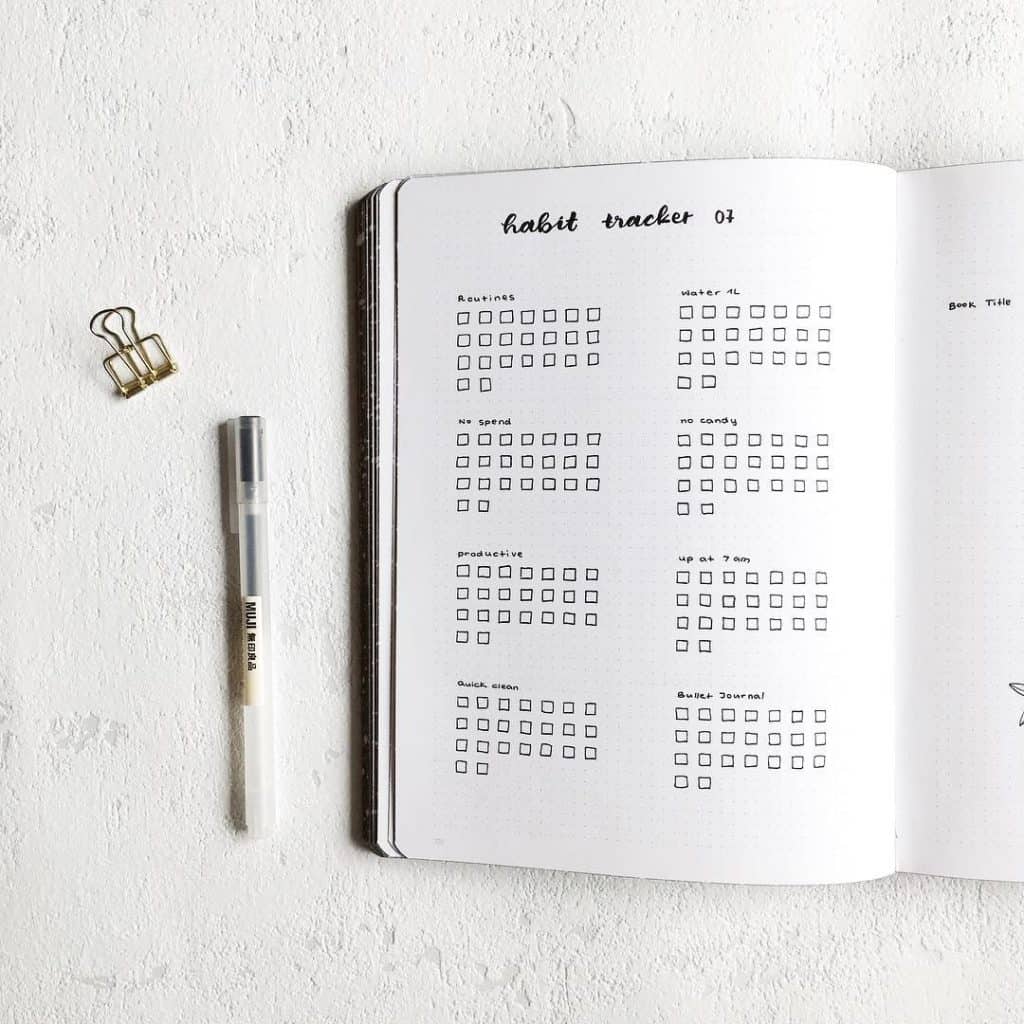 habit tracker 07
Routines
Water 1L
No spend
no candy
productive
up at 7 am
Quick clean
Bullet Journal
Book Title
MUJI 無印良品